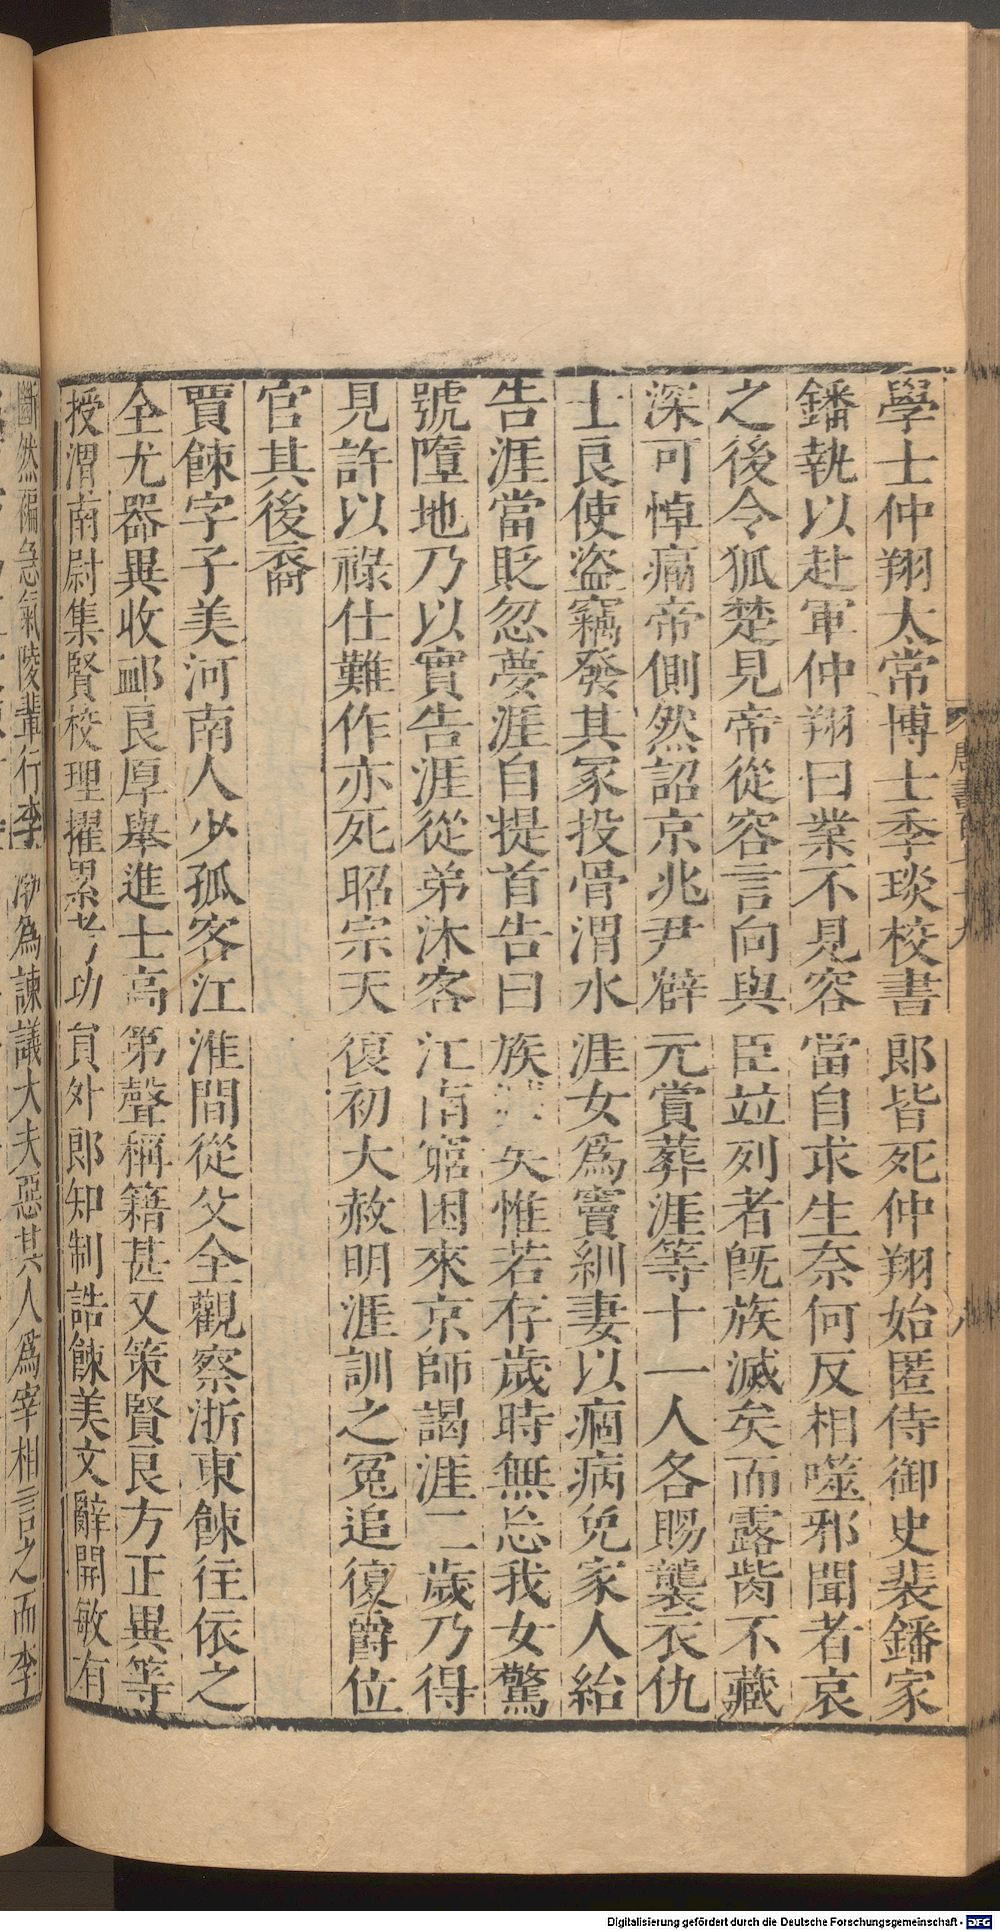 學士仲翔太常博士季琰校書郎皆死仲翔始匿侍御史裴鐇家
鐇執以赴軍仲翔曰業不見容當自求生奈何反相噬邪聞者哀
之後令狐楚見帝從容言向與臣竝列者旣族滅矣而露胔不藏
深可悼痛帝惻然詔京兆尹薛元賞葬涯等十一人各賜襲衣仇
士良使盜竊發其冢投骨渭水涯女爲竇紃妻以痼病免家人紿
告涯當貶忽夢涯自提首告曰族滅矣惟若存歲時無忘我女驚
號墮地乃以實告涯從弟沐客江南窮困來京師謁涯二歲乃得
見許以祿仕難作亦死昭宗天復初大赦明涯訓之冤追復爵位
官其後裔
賈餗字子美河南人少孤客江淮間從父全觀察浙東餗往依之
全尤器異收䘏良厚舉進士高第聲稱籍甚又策賢良方正異等
授渭南尉集賢校理擢累考功員外郎知制誥餗美文辭開敏有
斷然褊急氣陵輩行李渤爲諫議大夫惡其人爲宰相言之而李
唐書
八
Digitalisierung gefördert durch die Deutsche Forschungsgemeinschaft - DFG